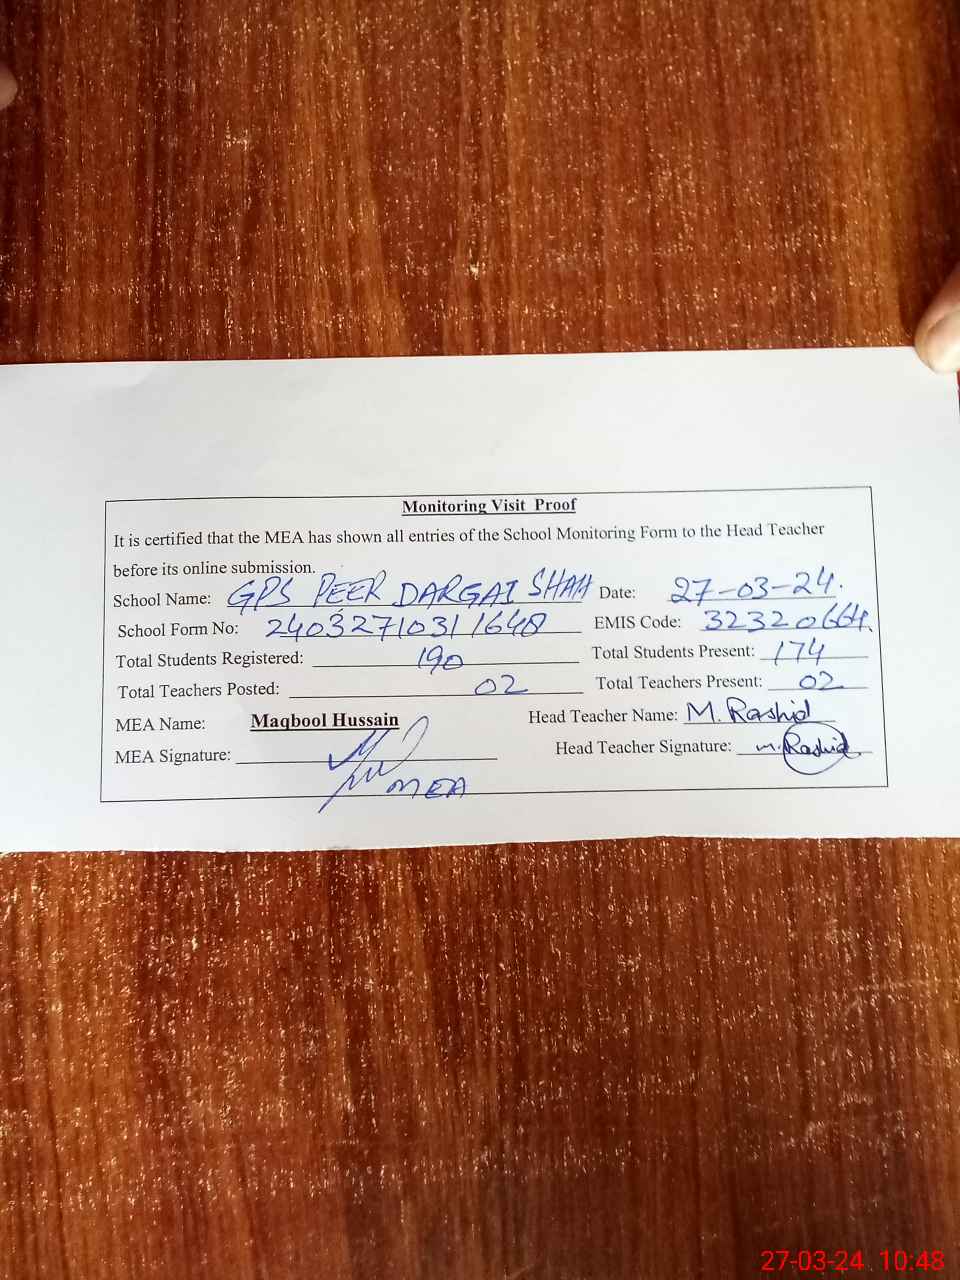 Monitoring Visit Proof
It is certified that the MEA has shown all entries of the School Monitoring Form to the Head Teacher
before its online submission.
School Name: GPS PEER DARGAI SHAH Date: 27-03-24.
School Form No: 2403271031 1648 EMIS Code: 32320664
Total Students Registered: 190 Total Students Present: 174
Total Teachers Posted: 02 Total Teachers Present: 02
MEA Name: Maqbool Hussain Head Teacher Name: M. Rashid
MEA Signature: Head Teacher Signature: M. Rashid
MEA
27-03-24 10:48